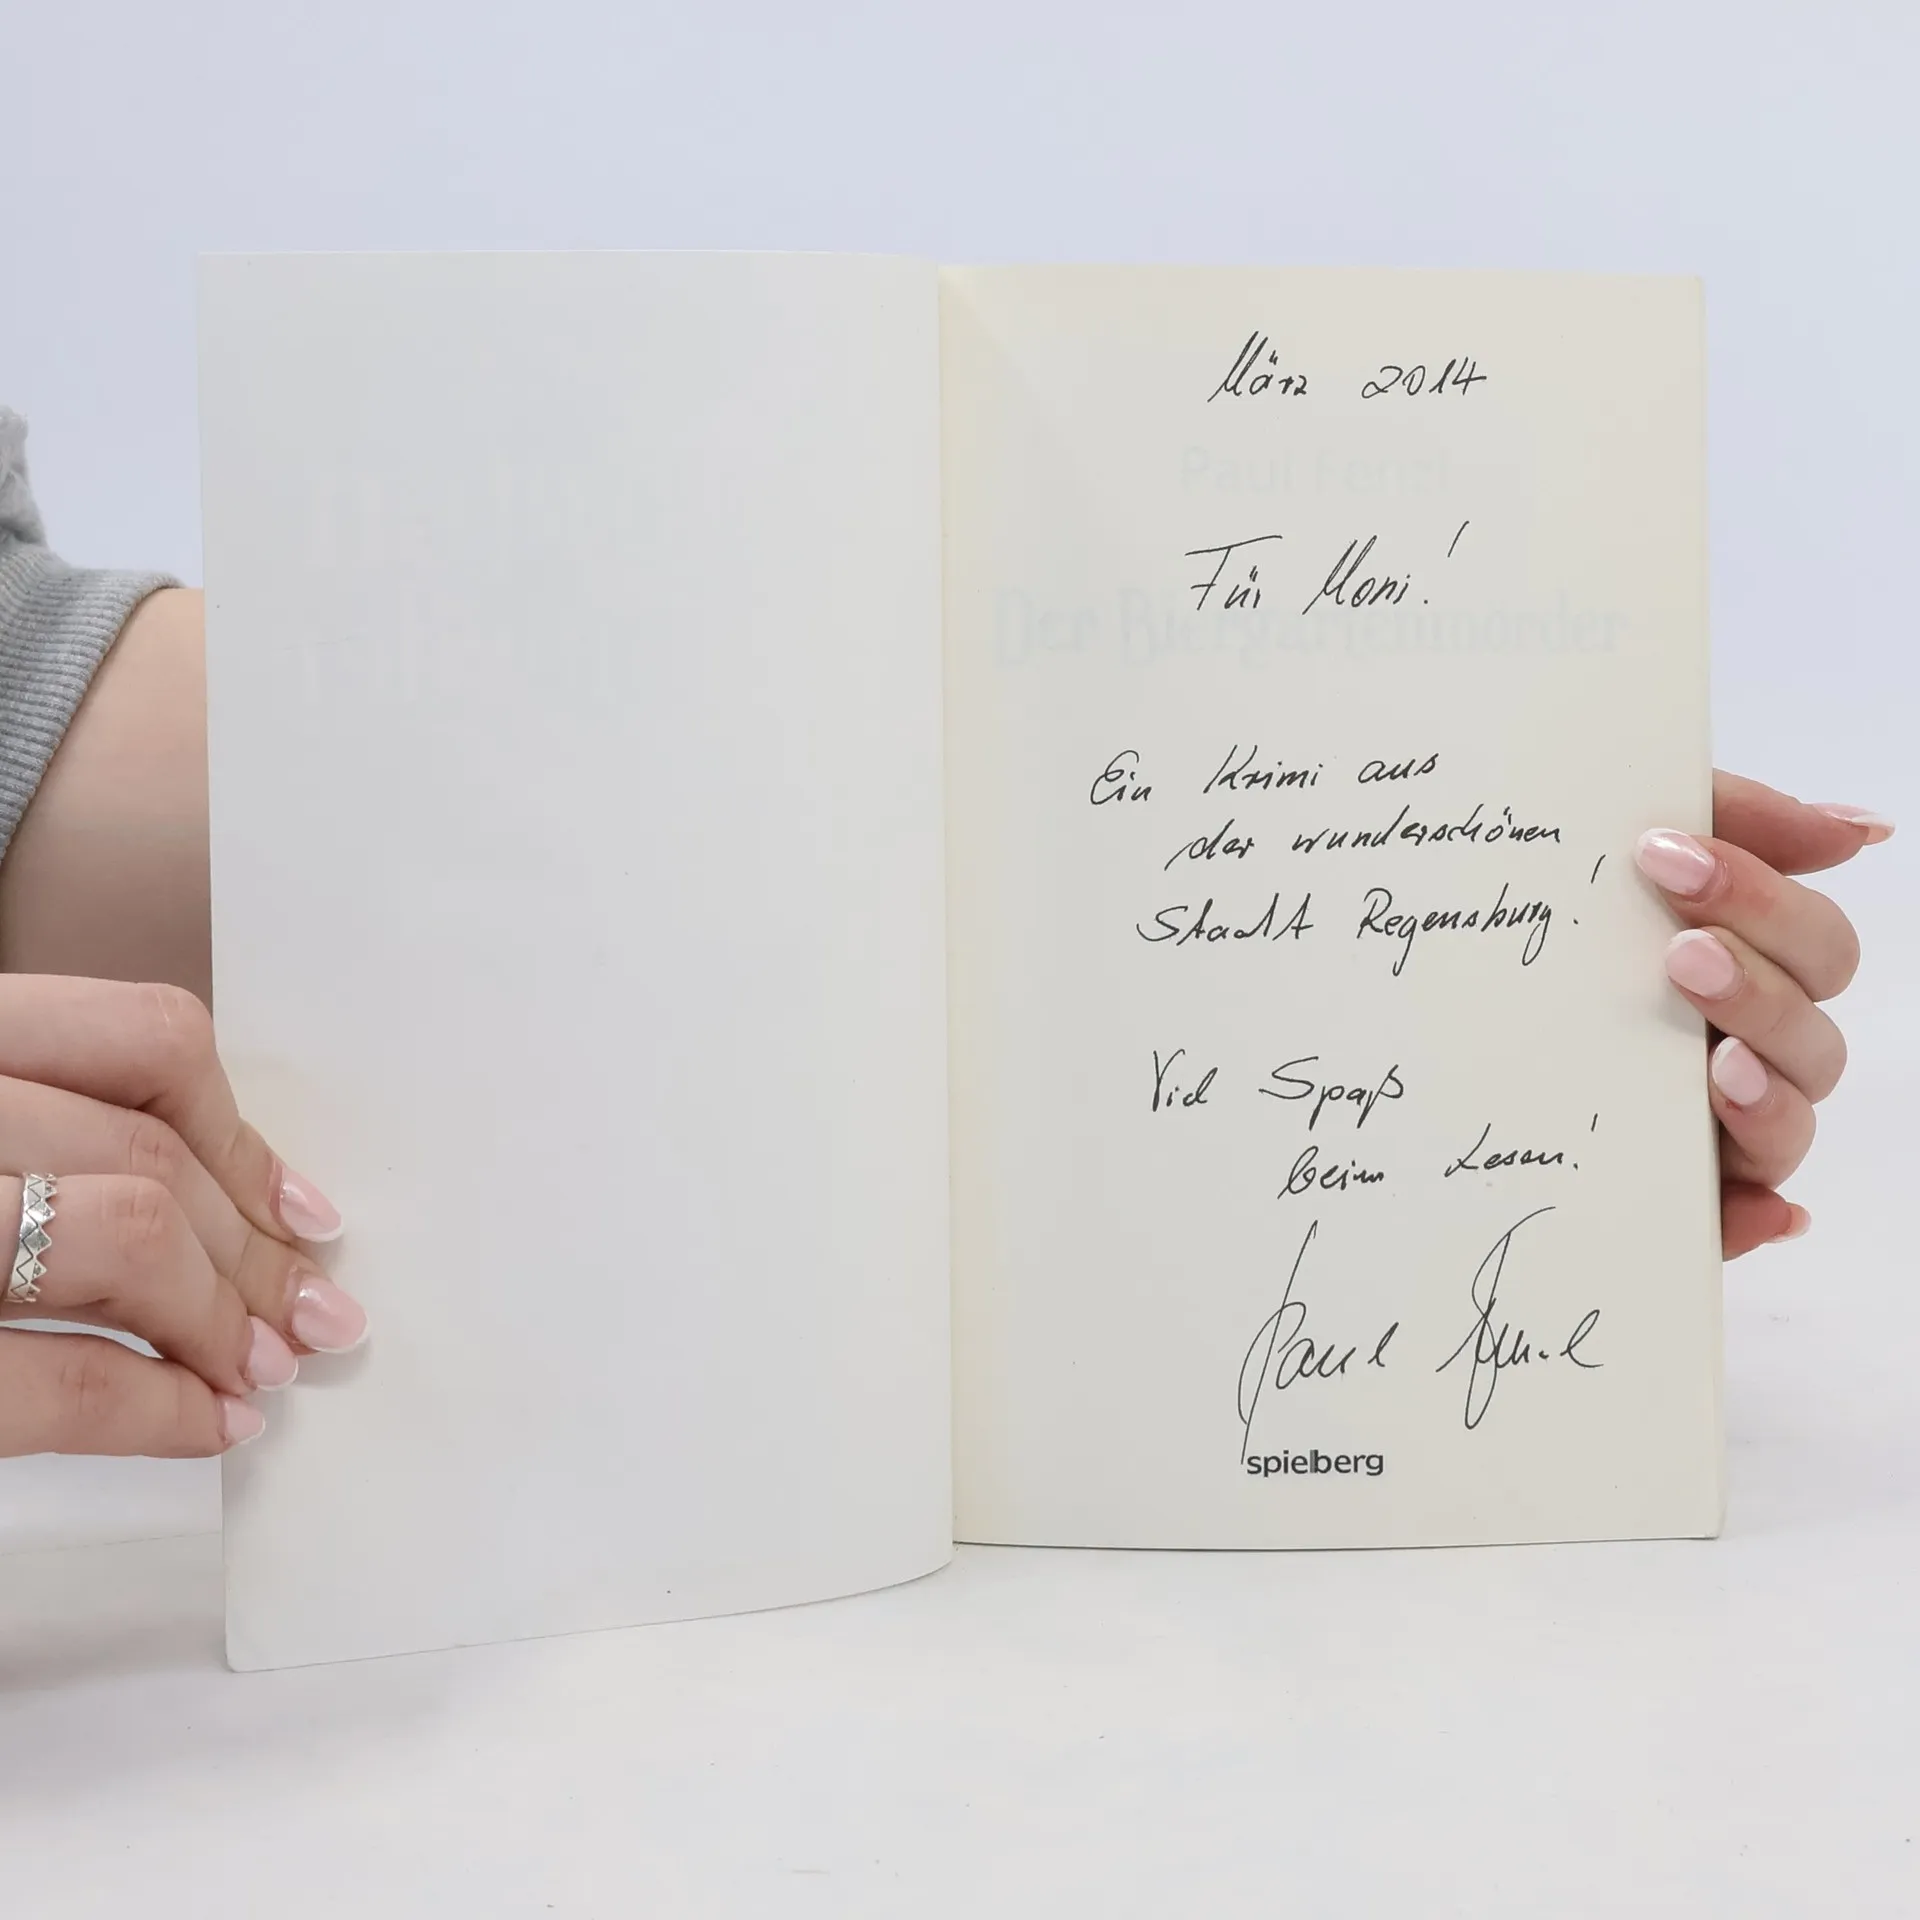 März 2014
Paul Fenzl
Für Moni!
Der Biergartenmörder
Ein Krimi aus
der wunderschönen
Stadt Regensburg!
Viel Spaß
beim Lesen!
Paul Fenzl
spielberg